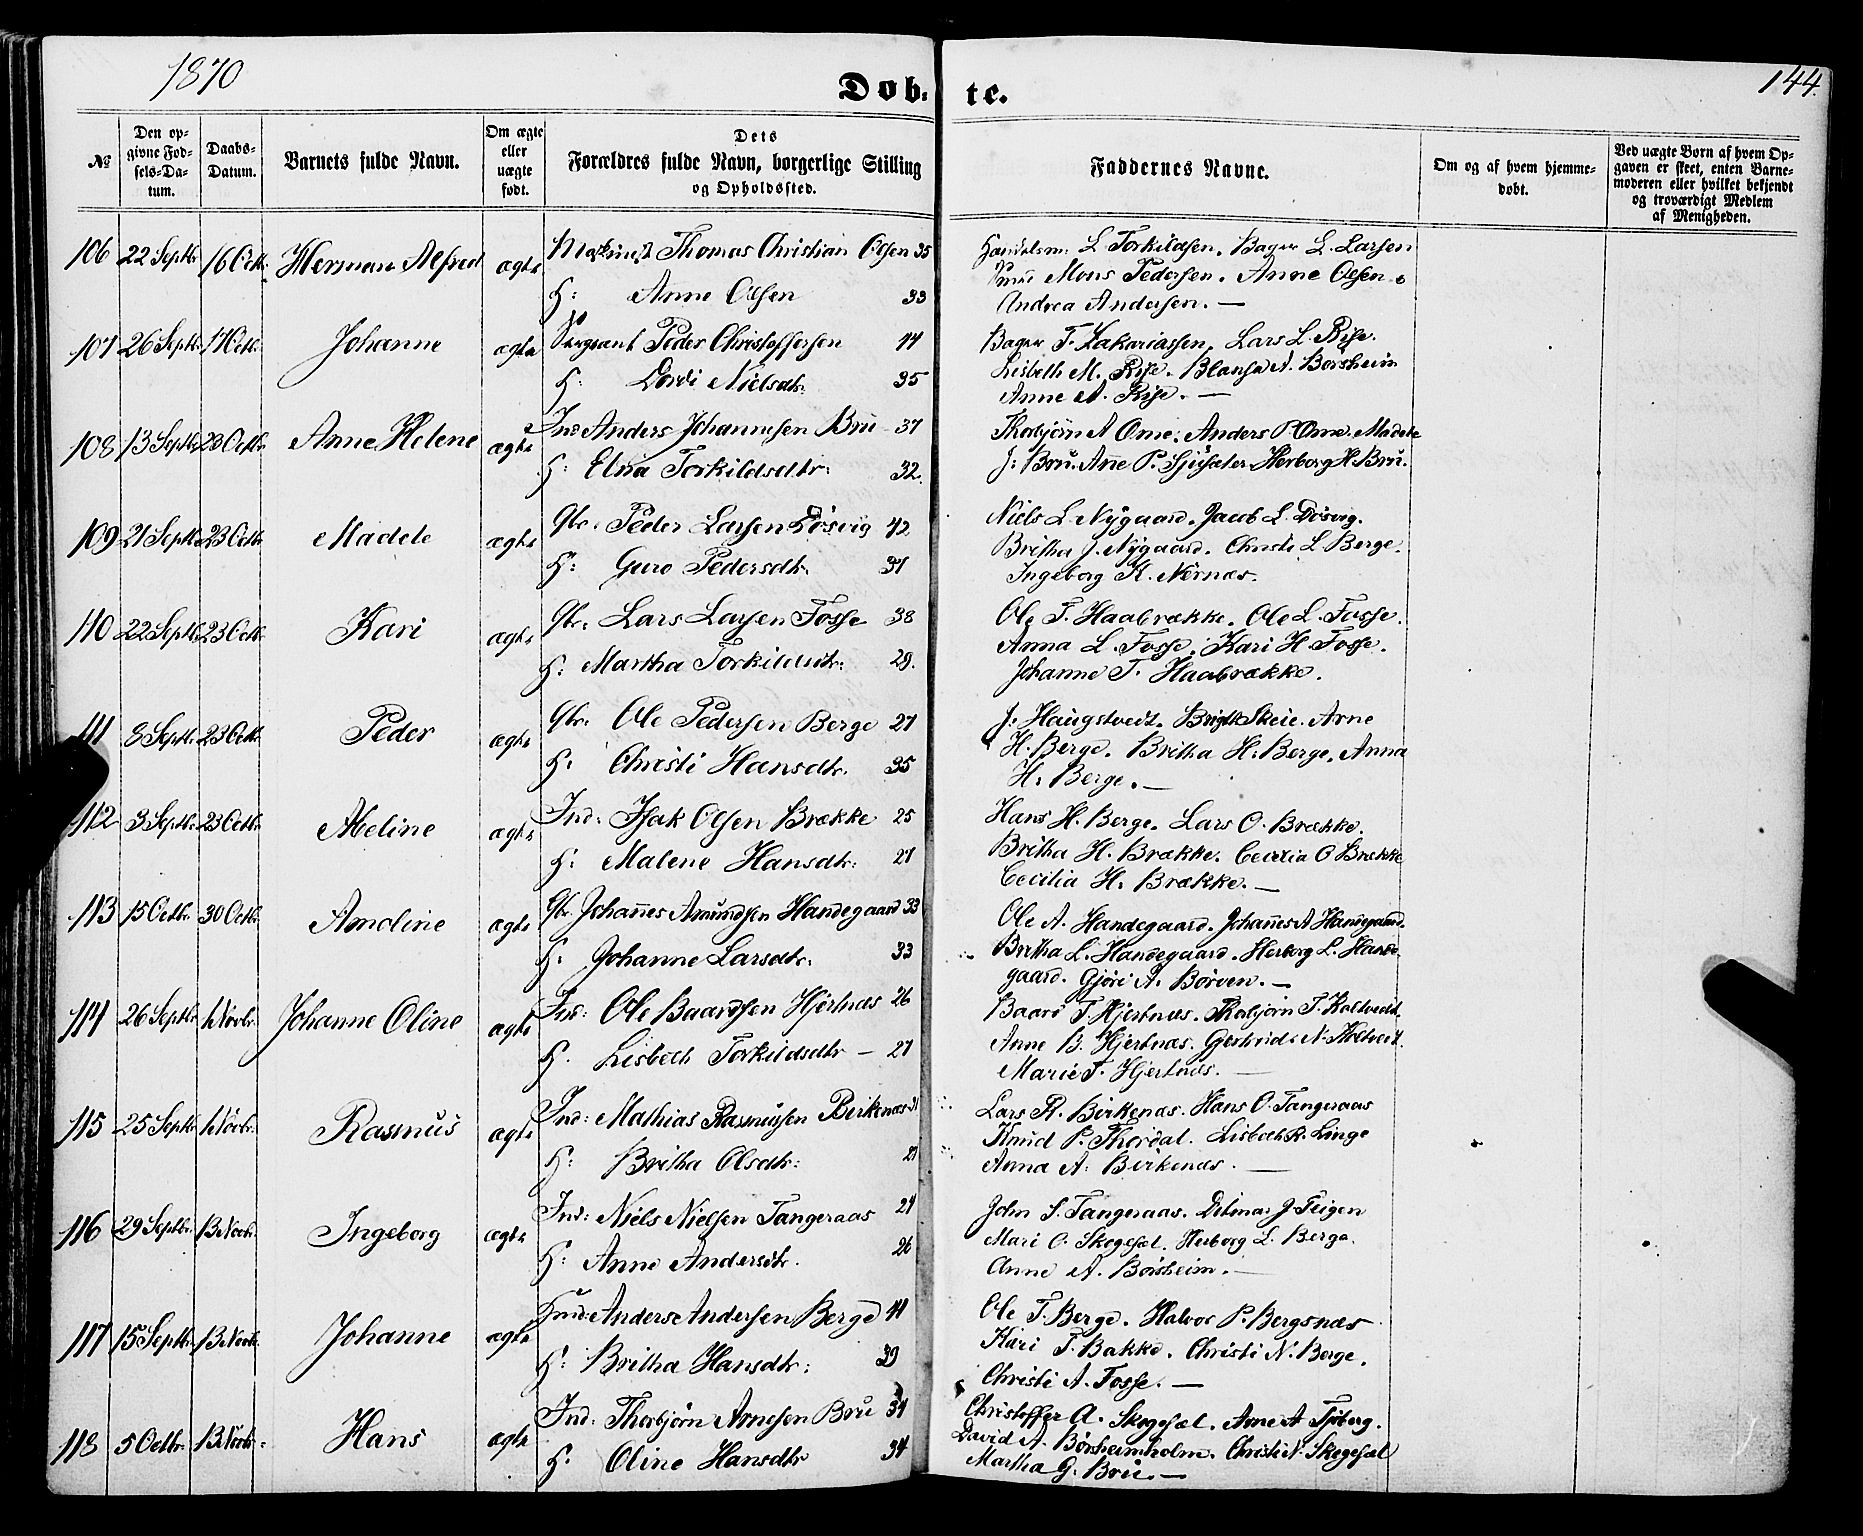 1870
Døb: te.
144.
№
Den op-
givne Fød-
sels-Da-
tum.
Daabs-
Datum.
Barnets fulde Navn.
Om ægte
eller
uægte
født.
Dets
Forældres fulde Navn, borgerlige Stilling
og Opholdssted.
Faddernes Navne.
Om og af hvem hjemme-
døbt.
Ved uægte Børn af hvem Op-
gaven er skeet, enten Barne-
moderen eller hvilket bekjendt
og troværdigt Medlem
af Menigheden.
106 22 Septbr 16 Octbr. Herman Alfred ægte Thomas Christian Olsen 35
H: Anne Olsen 33
Handelsm. L Torkildsen. Bager L. Larsen
Smed Mons Pedersen. Anne Olsen.
Andrea Andersen. —
107 26 Septbr 17 Octbr. Johanne ægte Sergeant Peder Christoffersen 44
H: Dordi Nielsdtr. 35
Bager T. Zakariassen. Lars L. Rise.
Lisbeth M. Rise. A. Børsheim
Anne A. Rise. —
108 13 Septbr 23 Octbr. Anne Helene ægte Ind Anders Johannesen Bru 37
H: Elna Torkildsdtr: 32.
Thorbjörn A Ome. Anders P. Ome. Madele
J: Bru. Anne P. Sjusæter. Herborg H. Bru.
109 21 Septbr 23 Octbr. Madele ægte Gbr. Peder Larsen Dösvig 42
H: Guro Pedersdtr. 37
Niels L. Nygaard. Jacob L. Dösvig.
Britha J. Nygaard. Christi L. Berge.
Ingeborg K. Nernæs.
110 22 Septbr 23 Octbr. Kari ægte Gbr. Lars Larsen Fosse 38
H: Martha Torkildsdtr: 29.
Ole T. Haabrække. Ole L. Fosse.
Anna L. Fosse. Kari H. Fosse.
Johanne T. Haabrække.
111 8 Septbr. 23 Octbr. Peder ægte Gbr. Ole Pedersen Berge 27
H: Christi Hansdtr. 35
J: Haugstvedt. Skeie. Arne
H. Berge. Britha H: Berge. Anna
H: Berge. —
112 3 Septbr. 23 Octbr. Abeline ægte Ind: Isak Olsen Brække 25
H: Malene Hansdtr: 27
Hans H. Berge. Lars O. Brække.
Britha H. Brække. Cecilia O Brække
Cecilia H. Brække. —
113 15 Octbr. 30 Octbr. Amoline ægte Gbr. Johannes Amundsen Handegaard 33
H: Johanne Larsdtr: 33
Ole A. Handegaard. Johannes A Handegaard.
Britha L. Handegaard. Herborg L. Hande-
gaard. Gjöri A. Børven. —
114 26 Septbr 1 Novbr. Johanne Oline ægte Ind: Ole Baardsen Hjertnæs 26
H. Lisbeth Torkildsdtr — 27
Baard T. Hjertnæs. Thorbjörn T. Kaltvedt.
Anne B. Hjertnæs. Gjertrud N.
Marie T. Hjertnæs. —
115 25 Septbr 1 Novbr. Rasmus ægte Ind: Mathias Rasmussen Birkenæs 31
H: Britha Olsdtr: 27
Lars R. Birkenæs. Hans O. Tangeraas
Knud P. Thordal. Lisbeth R. Linge
Anna A. Birkenæs. —
116 29 Septbr. 13 Novbr. Ingeborg ægte Ind: Niels Nielsen Tangeraas 24
H: Anne Andersdtr. 26
John S. Tangeraas. Ditmar J. Teigen
Mari O. Skogesal. Herborg L. Berge.
Anne A. Børsheim. —
117 15 Septbr 13 Novbr. Johanne ægte Anders Andersen Berge 41
H: Britha Hansdtr: 39
Ole T. Berge. Halvor P. Bergsnæs
Kari T. Bakke. Christi N. Berge.
Christi A. Fosse. —
118 5 Octbr. 13 Novbr. Hans ægte Ind: Thorbjörn Arnesen Bru 34
H. Oline Hansdtr 34
Christoffer A. Skogesal. Arne A. Sjoberg.
David A. Børsheimholm. Christi N. Skogesal
Martha G. Bru. —